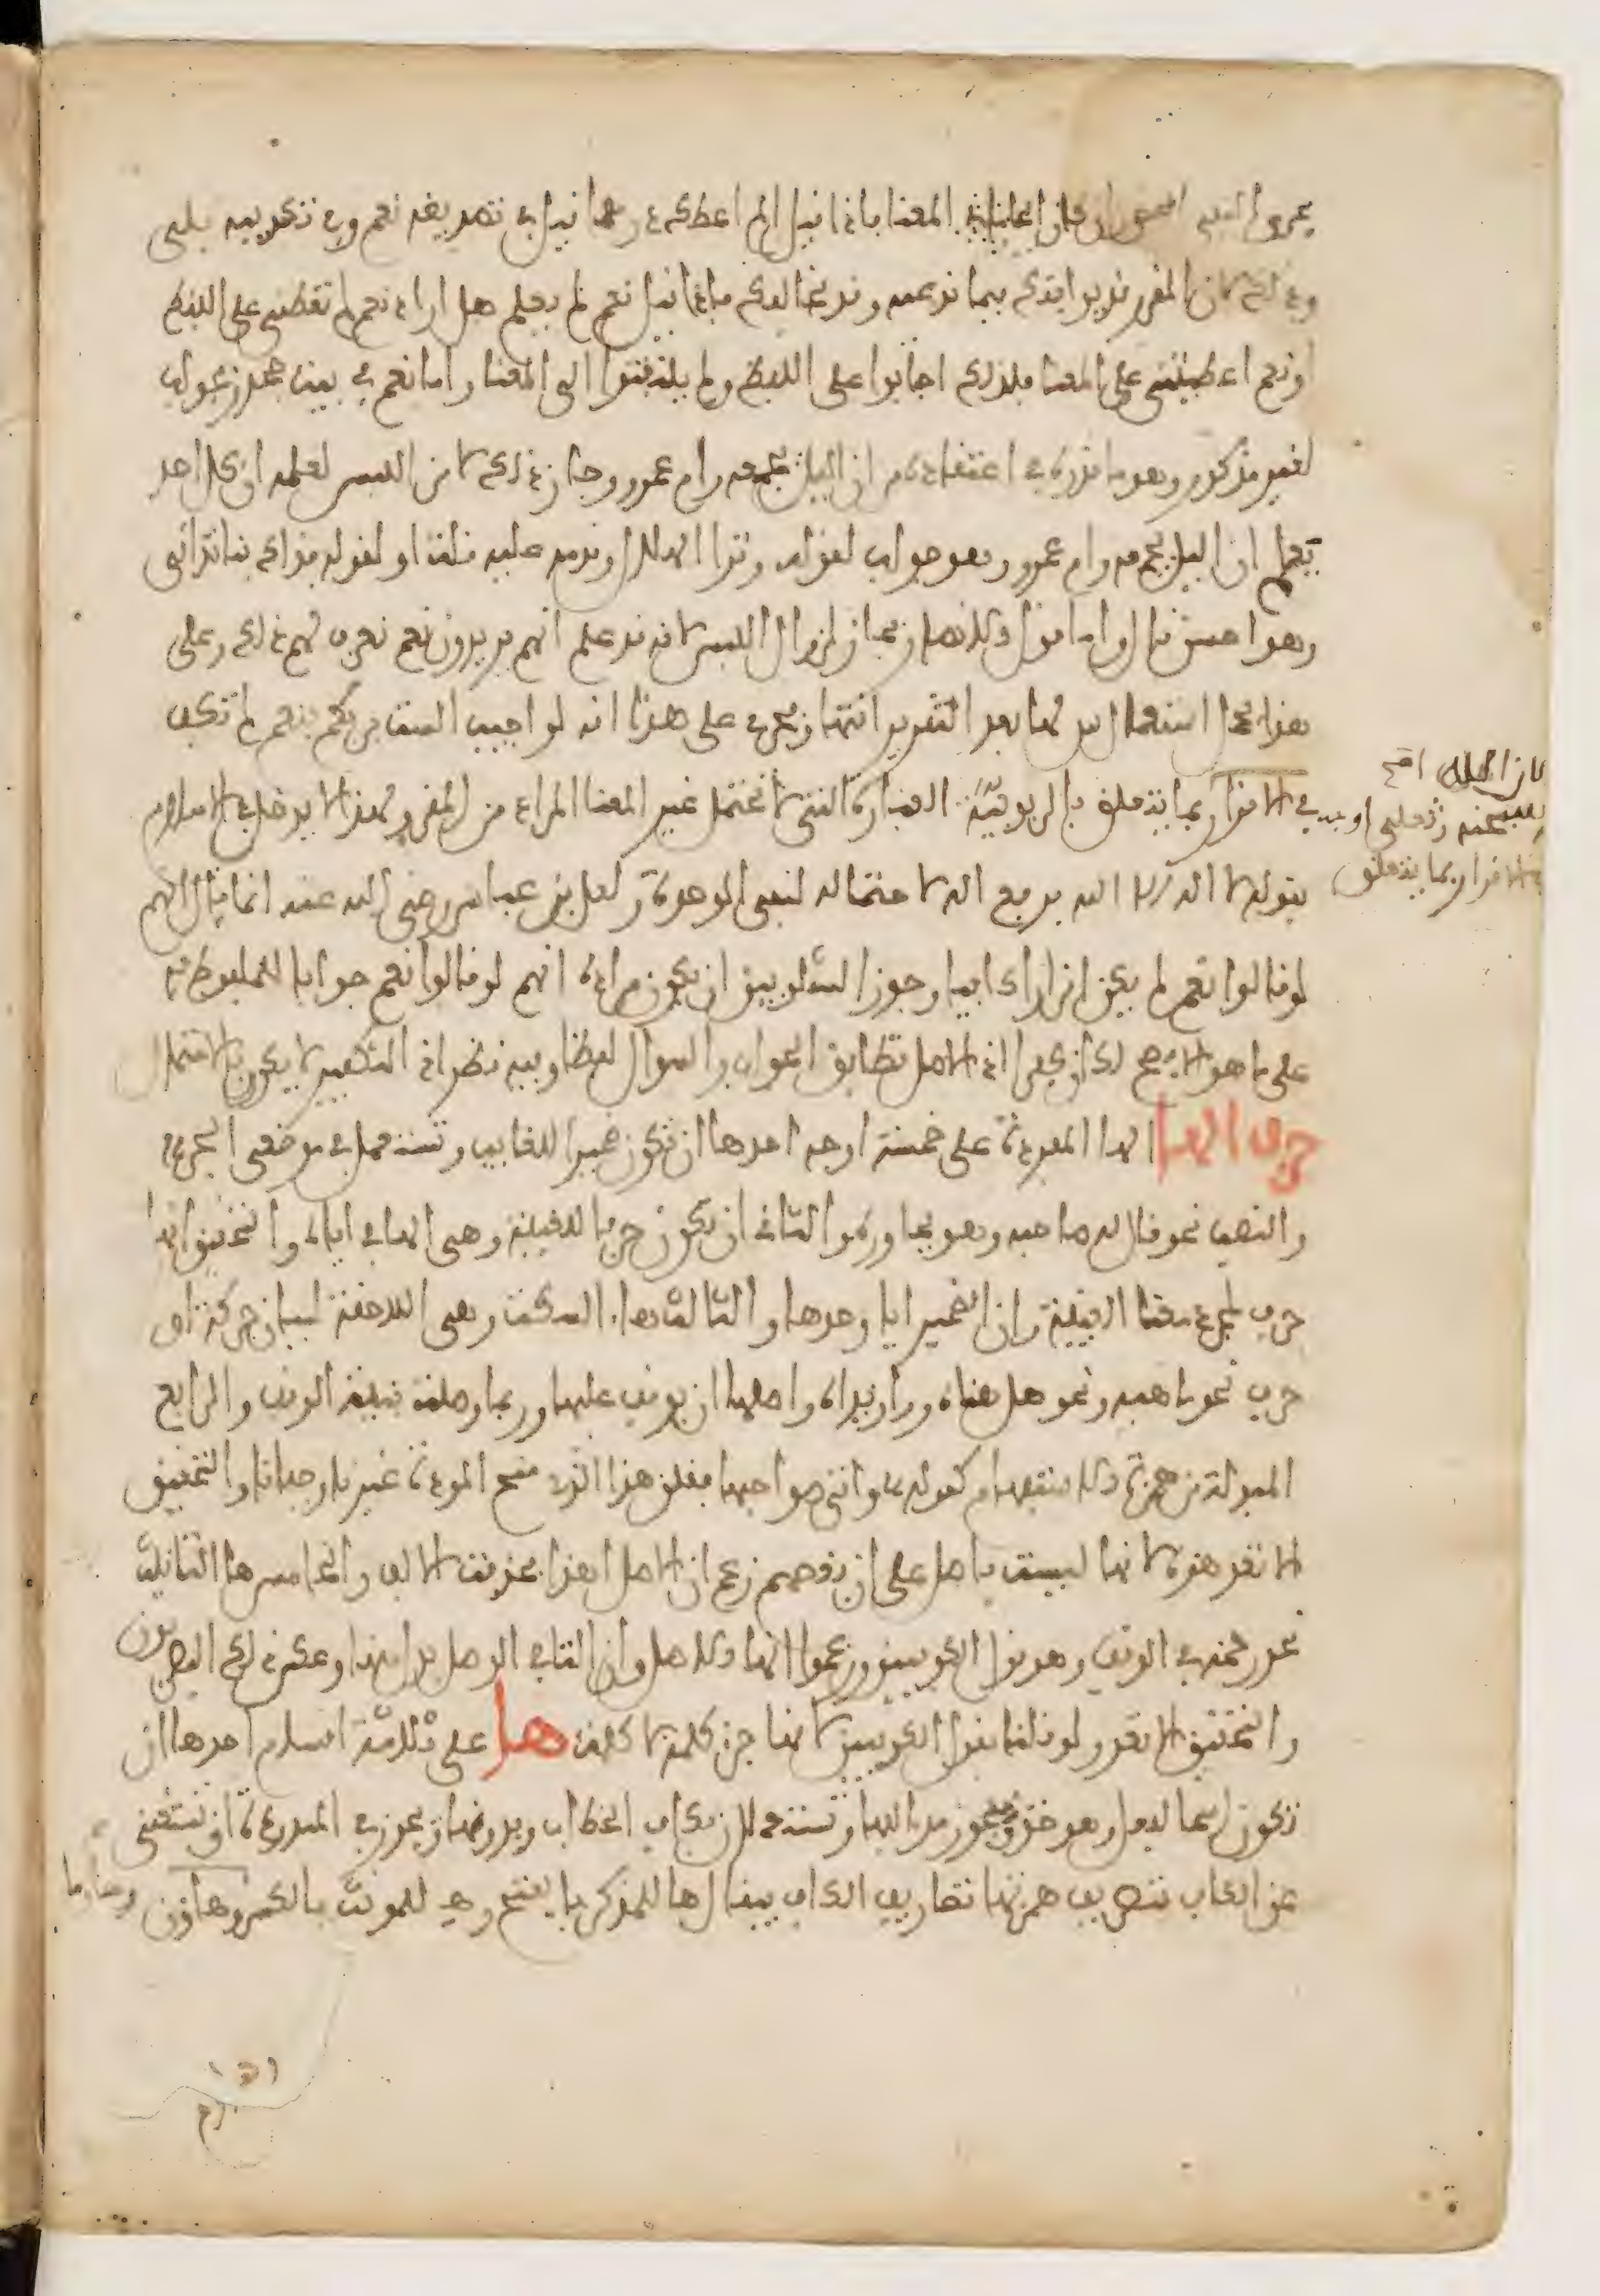 يجرى النفي المحض وان كان ايجابا في المعنا فاذا قيل الم اعطك درهما قيل في تصديقه نعم وفي تكذيبه بلى
وذلك لان المقرر قد يوافقك فيما تدعيه وقد يخالفك فاذا قيل نعم لم يعلم هل اراد نعم لم تعطني على اللفظ
او نعم اعطيتني على المعنا فلذلك اجابوا على اللفظ ولم يلتفتوا الى المعنا واما نعم في بيت جحدر فجواب
لغير مذكور وهو ما قدره في اعتقاده من ان الليل يجمعه وام عمرو وجاز ذلك لامن اللبس لعلمه ان كل احد
يعلم ان الليل يجمعه وام عمرو وهو جواب لقوله وترا الهلال وقدمه عليه قلت او لقوله فذاك بنا تداني
وهو احسن قال واما قول الانصار فجاز لزوال اللبس لانه قد علم انهم يريدون نعم نعرف لهم ذلك وعلى
هذا يحمل استعمال سيبويه لها بعد التقرير انتها ويجري على هذا انه لو اجيب الست بربكم بنعم لم تكف
في الاقرار بما يتعلق بالربوبية العبارة التي لا تحتمل غير المعنا المراد من المقر ولهذا لا يدخل في الاسلام
كان الله اوجب
عنه وتعلى
في الاقرار بما يتعلق
بقوله لا اله الا الله برفع اله لاحتماله لنفي الوحدة ولعل بن عباس رضي الله عنه انما قال انهم
لو قالوا نعم لم يكن اقرارا كافيا وجوز الشلوبين ان يكون مراده انهم لو قالوا نعم جوابا للملفوظ به
على ما هو الافصح لكان كفرا اذ الاصل تطابق الجواب والسوال لفظا وفيه نظر اذ التكفير لا يكون بالاحتمال
حرف الهاء الها المفردة على خمسة اوجه احدها ان تكون ضميرا للغايب وتستعمل في موضعي الجر
والنصب نحو قال له صاحبه وهو يحاوره والثاني ان يكون حرفا للغيبة وهي الها في اياه والتحقيق انها
حرف لمجرد معنا الغيبة وان الضمير ايا وحدها والثالث هاء السكت وهي اللاحقة لبيان حركة او
حرف نحو ماهيه ونحو هل هناه ووازيداه واصلها ان يوقف عليها وربما وصلت بنية الوقف والرابع
المبدلة من همزة الاستفهام كقوله واتى صواحبها فقلن هذا الذي منح المودة غيرنا وجفانا والتحقيق
الا تعد هذه لانها ليست باصل على ان بعضهم زعم ان الاصل هذا فحذفت الالف والخامس ها التانيث
نحو رحمه في الوقف وهو قول الكوفيين وزعموا انها الاصل وان التا في الوصل بدل منها وعكس ذلك البصريون
والتحقيق الا تعد ولو قلنا بقول الكوفيين لانها جزء كلمة لا كلمة ها على ثلاثة اقسام احدها ان
تكون اسما لفعل وهو خذ ويجوز مد الفها وتستعملان بكاف الخطاب وبدونها ويجوز في الممدودة ان تستغني
عن الكاف بتصريف همزتها تصاريف الكاف فيقال ها للمذكر بالفتح وهاء للمونث بالكسر وهاؤن وهاؤما